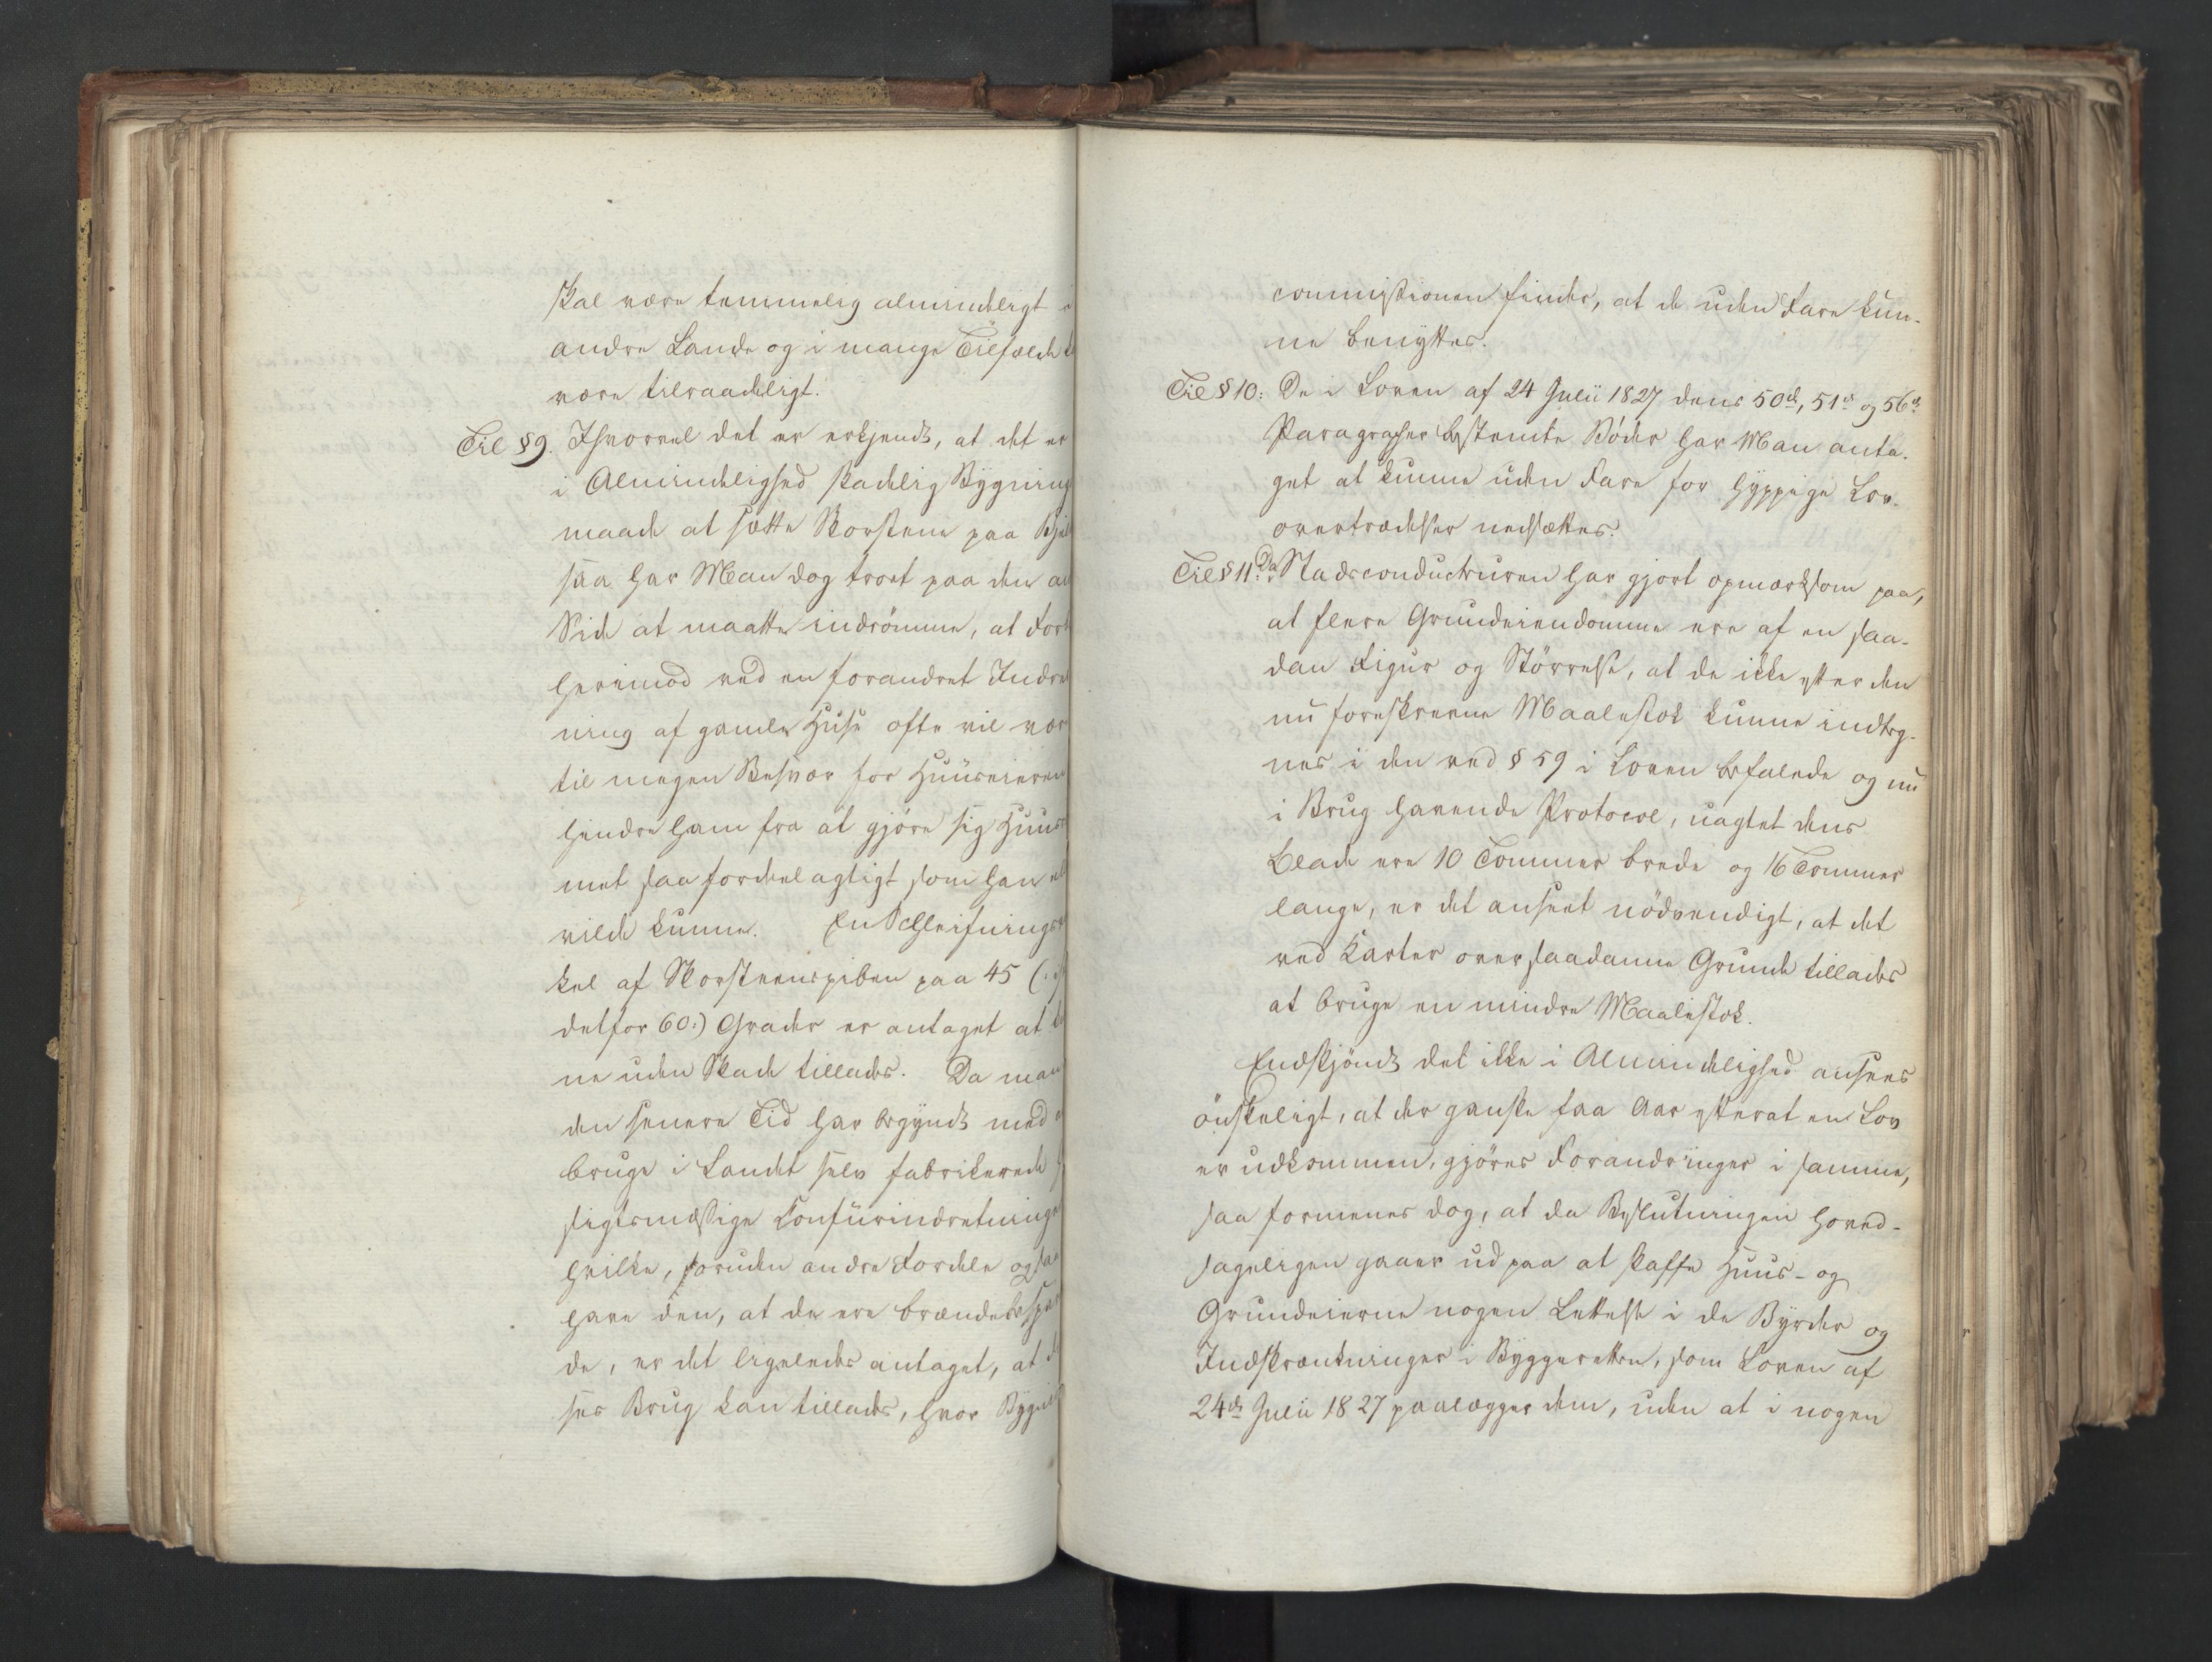 skal være temmelig almindeligt i
andre Lande og i mange Tilfælde
være tilraadeligt.
Til § 9. Ihvorvel det er erkjendt, at det er
i Almindelighed skadelig Bygnings
maade at sætte Skorstene paa
saa har Man dog troet paa den
Side at maatte indrömme, at
herimod ved en forandret Indret
ning af gamle Huse ofte vil vær
til megen Besvær for Huuseieren
hindre ham fra at gjöre sig Huus
met saa fordeelagtigt som han
vilde kunne. En Schleifnings
kel af Skorsteenspiben paa 45 (:
detfor 60:) Grader er antaget at
ne uden Skade tillades. Da man
den senere Tid har begyndt med
bruge i Landet selv fabrikerede
sigtsmæssige Confürindretninge
hvilke, foruden andre Fordele og
have den, at de ere brændebespa
de, er det ligeledes antaget, at
ses Brug kan tillades, hvor Bygni
commissionen finder, at de uden Fare kun-
ne benyttes.
Til § 10: De i Loven af 24 Julii 1827 dens 50de, 51de og 56de
Paragrapher bestemte Böder har Man anta-
get at kunne uden Fare for hyppige Lov-
overtrædelser nedsættes.
Til § 11. Da Stadsconducteuren har gjort opmærksom paa,
at flere Grundeiendomme ere af en saa-
dan Figur og Störrelse, at de ikke efter den
nu foreskrevne Maalestok kunne indteg-
nes i den ved § 59 i Loven befalede og nu
i Brug havende Protocol, uagtet dens
Blade ere 10 Tommer brede og 16 Tommer
lange, er det anseet nödvendigt, at det
ved Karter over saadanne Grunde tillades
at bruge en mindre Maalestok.
Endskjöndt det ikke i Almindelighed ansees
önskeligt, at der ganske faa Aar efterat en Lov
er udkommen, gjöres Forandringer i samme,
saa formenes dog, at da Beslutningen hoved-
sageligen gaaer ud paa at skaffe Huus- og
Grundeierne nogen Lettelse i de Byrder og
Indskrænkninger i Byggeretten, som Loven af
24de Julii 1827 paalægger dem, uden at i nogen